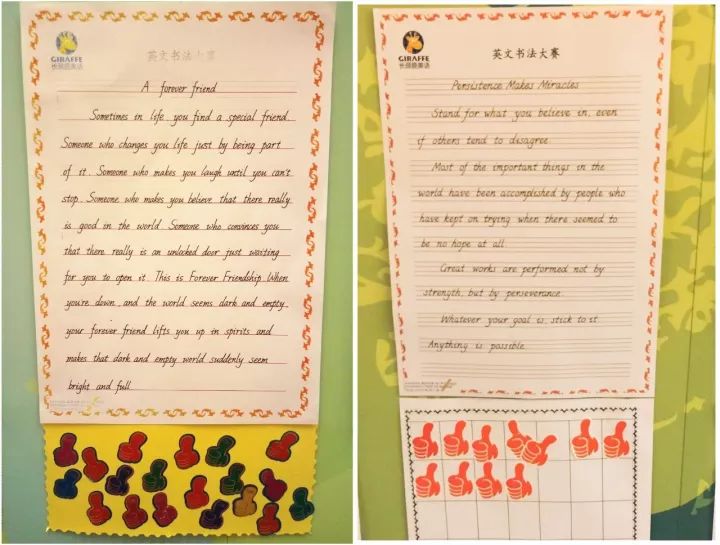 GIRAFFE
长颈鹿美语
英文书法大赛
A forever friend
Sometimes in life you find a special friend.
Someone who changes you life just by being part
of it. Someone who makes you laugh until you can't
stop. Someone who makes you believe that there really
is good in the world. Someone who convinces you
that there really is an unlocked door just waiting
for you to open it. This is Forever Friendship. When
you're down, and the world seems dark and empty,
your forever friend lifts you up in spirits and
makes that dark and empty world suddenly seem
bright and full.
GIRAFFE
长颈鹿美语
英文书法大赛
Persistence Makes Miracles
Stand for what you believe in, even
if others tend to disagree.
Most of the important things in the
world have been accomplished by people who
have kept on trying when there seemed to
be no hope at all.
Great works are performed not by
strength, but by perseverance.
Whatever your goal is, stick to it.
Anything is possible.